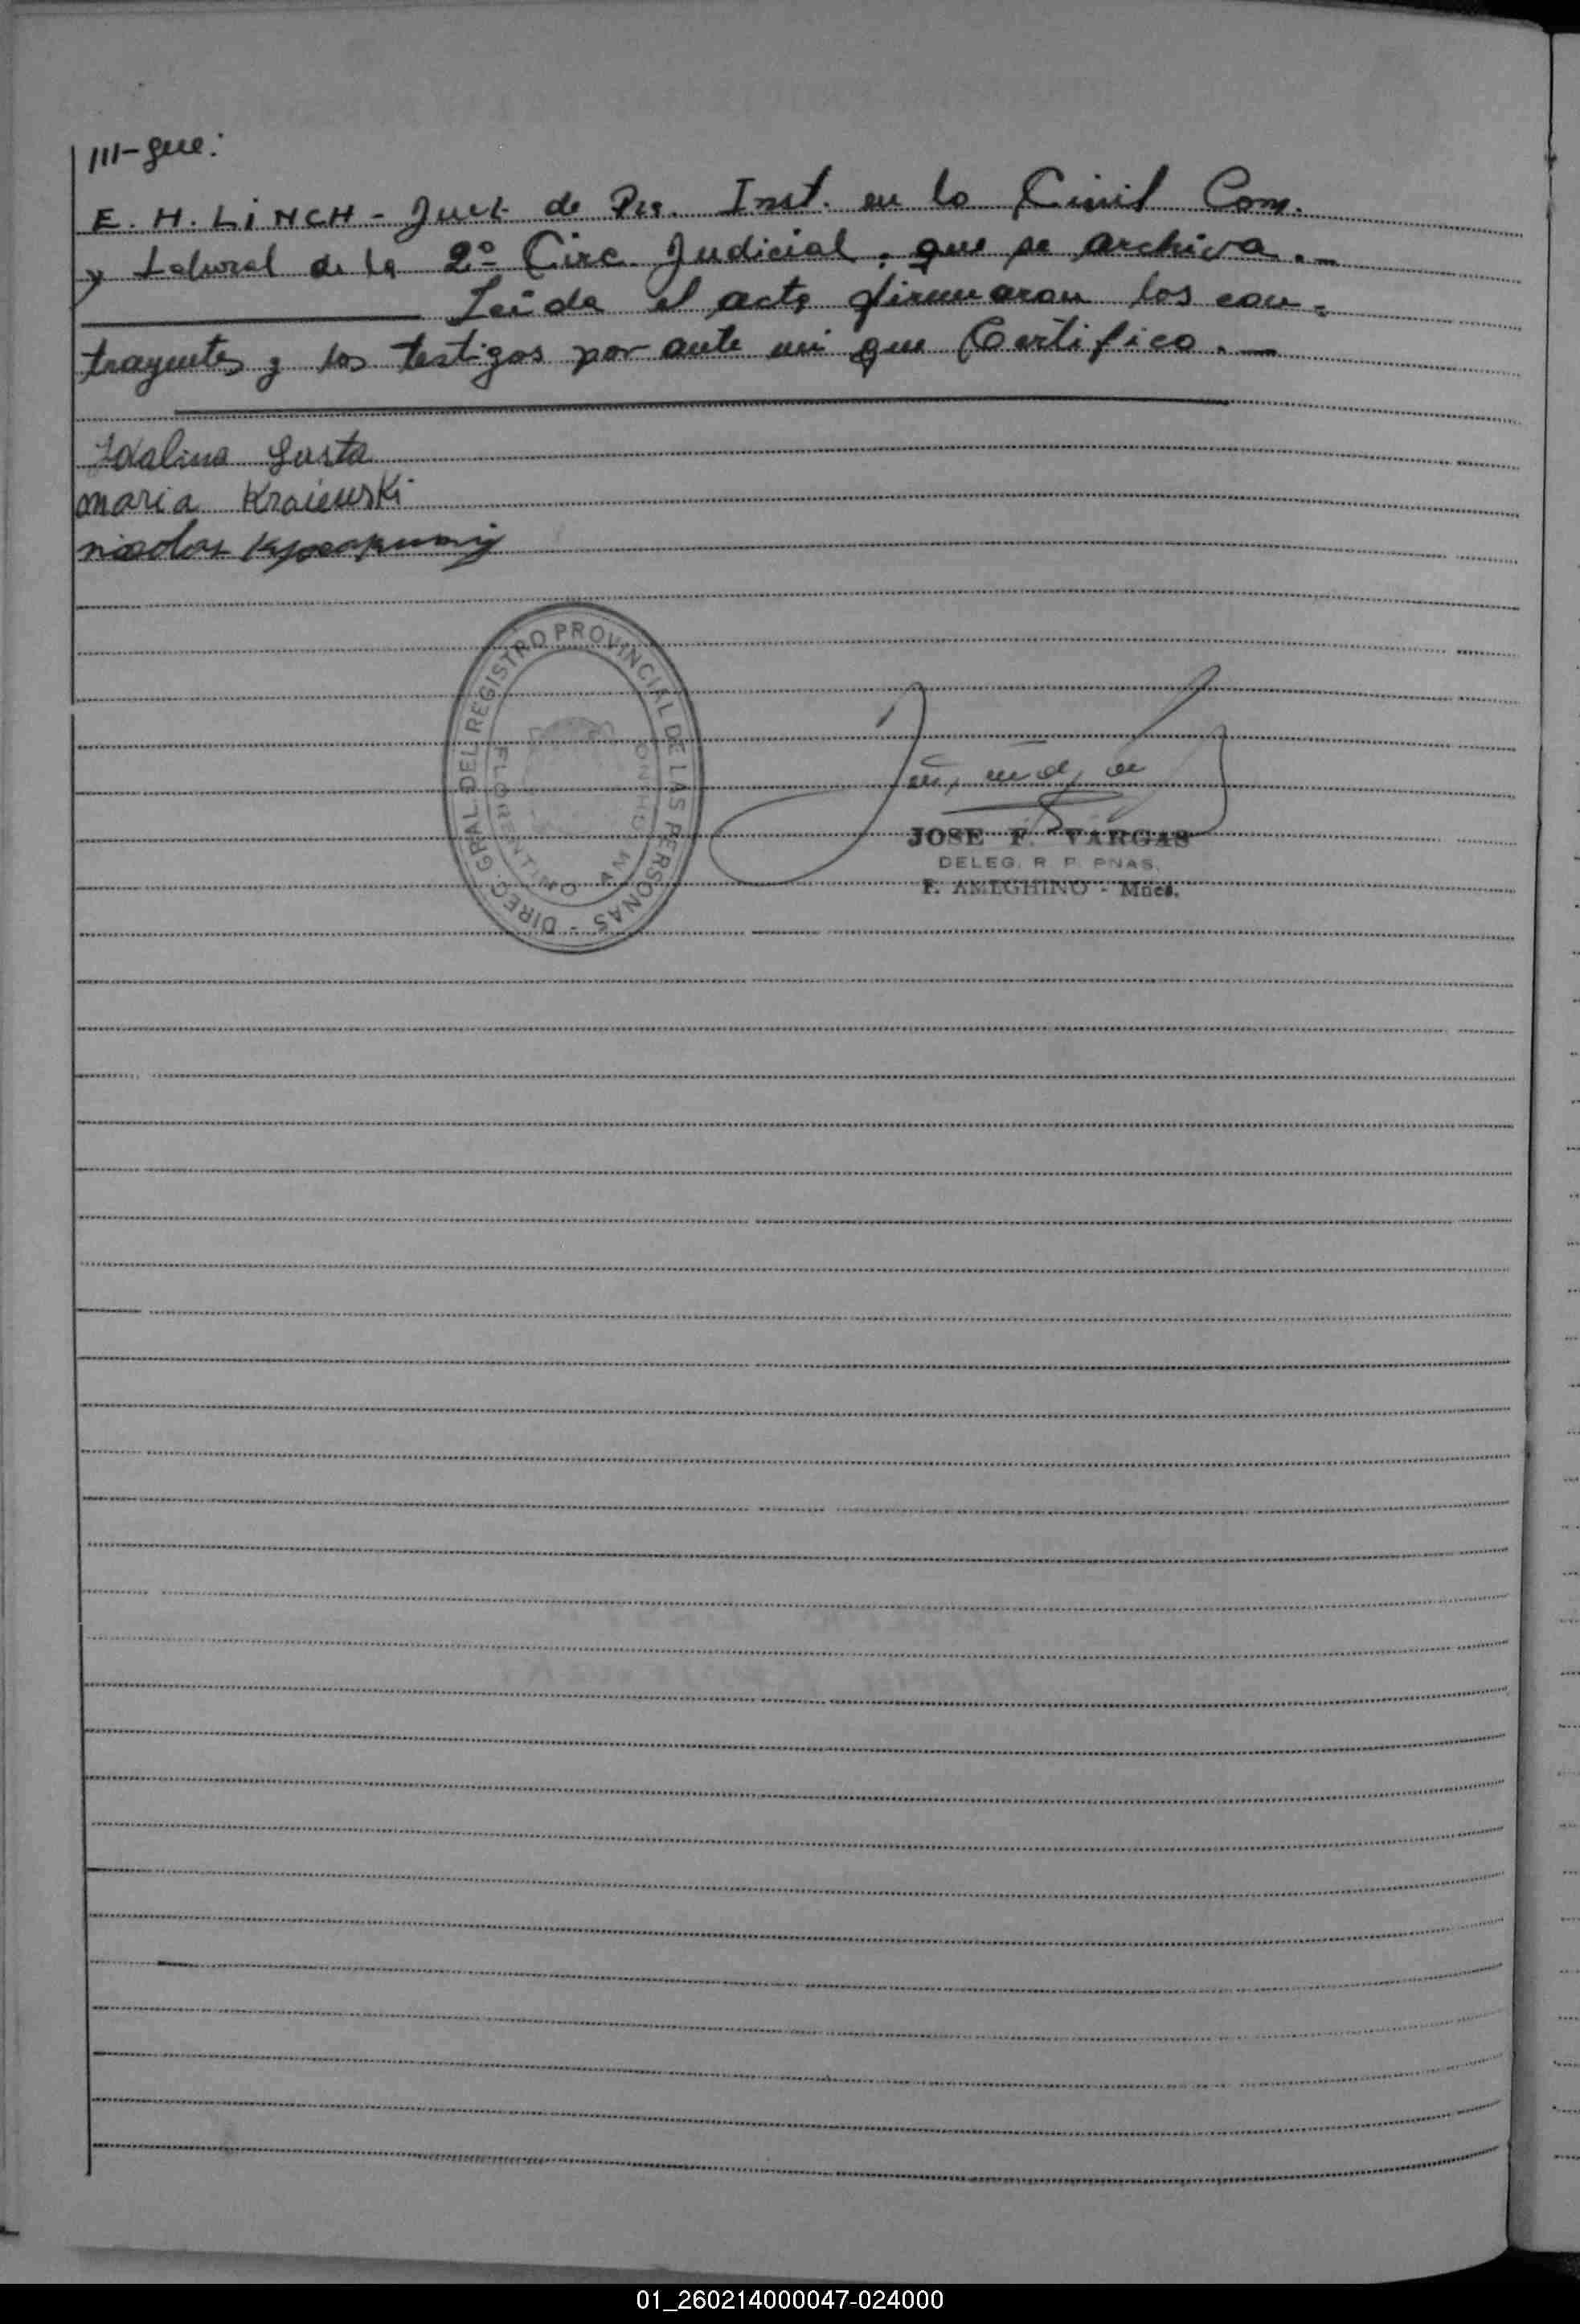 III-gue:
E. H. LiNCH - Juez de Pra. Inst. en lo Civil Com.
y Laboral de la 2º Circ. Judicial, que se archiva.-
Leida el acta firmaron los con-
trayentes y los testigos por ante mi que Certifico.-
Idalina Gusta
maria Kraieuski
nicolas
DIREC. GRAL. DEL REGISTRO PROVINCIAL DE LAS PERSONAS -
FLORENTINO AMEGHINO
JOSE F. VARGAS
DELEG. R. P. PNAS.
F. AMEGHINO - Mnes.
01_260214000047-024000